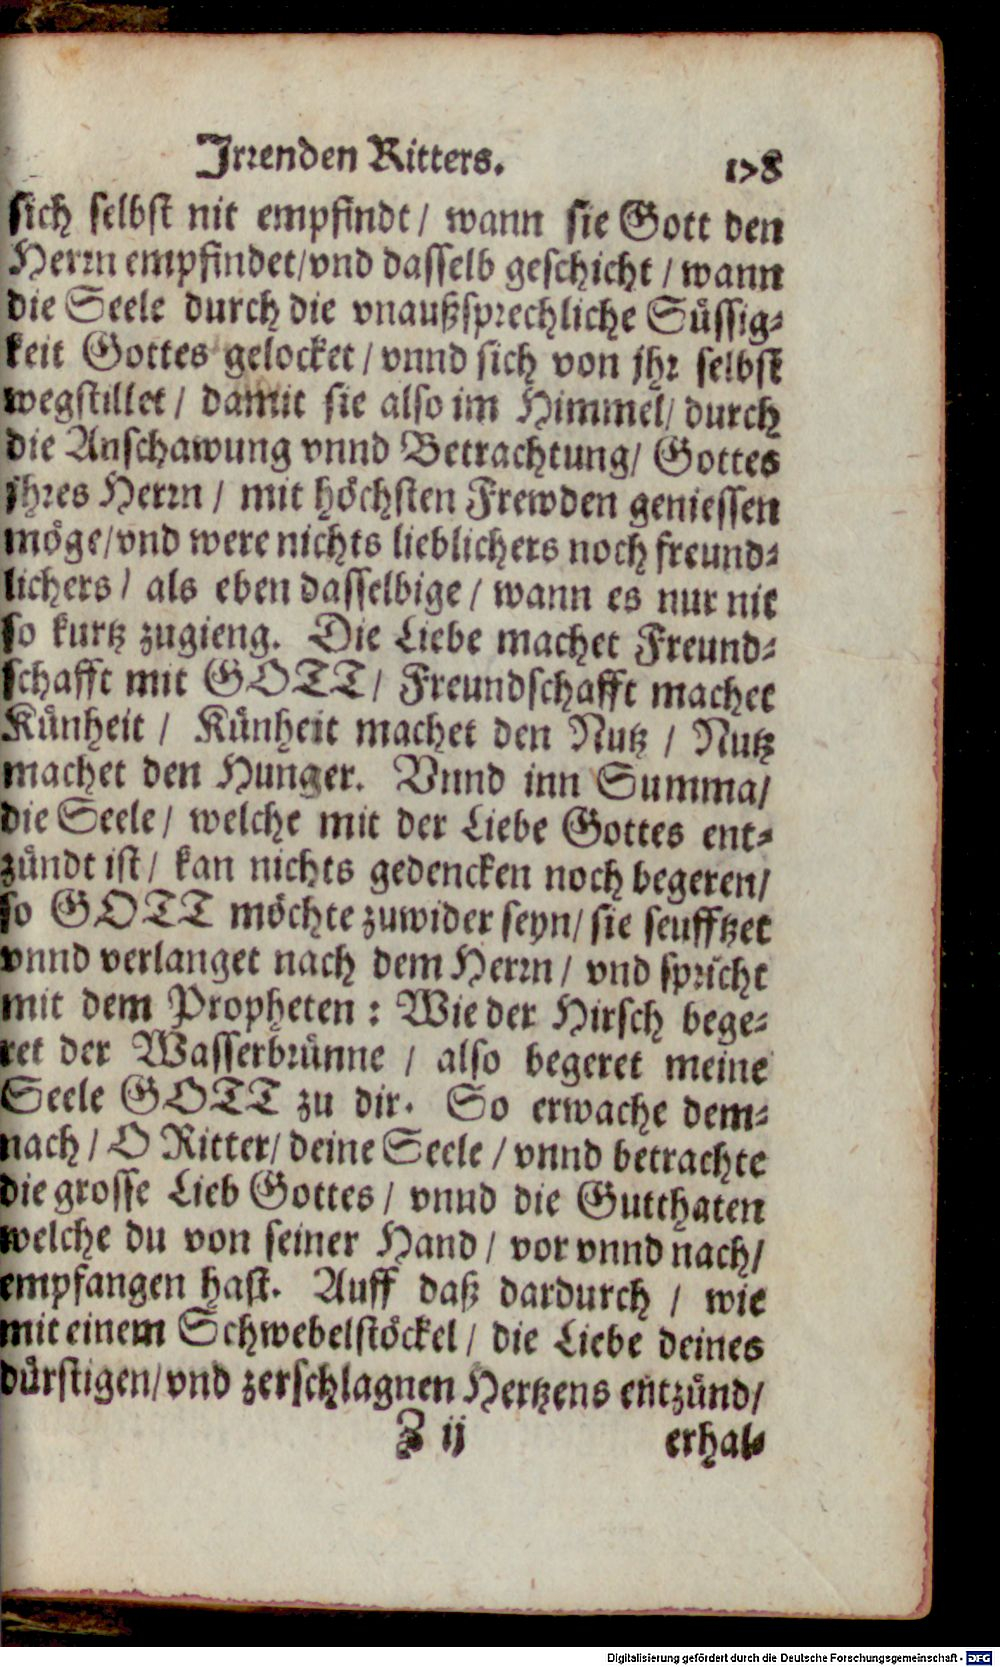 Irrenden Ritters. 178
sich selbst nit empfindt / wann sie Gott den
Herrn empfindet/vnd dasselb geschicht / wann
die Seele durch die vnaußsprechliche Süssig-
keit Gottes gelocket / vnnd sich von jhr selbst
wegstillet / damit sie also im Himmel/ durch
die Anschawung vnnd Betrachtung/ Gottes
jhres Herrn / mit höchsten Frewden geniessen
möge/vnd were nichts lieblichers noch freund-
lichers / als eben dasselbige / wann es nur nit
so kurtz zugieng. Die Liebe machet Freund-
schafft mit GOTT/ Freundschafft machet
Künheit / Künheit machet den Nutz / Nutz
machet den Hunger. Vnnd inn Summa/
die Seele / welche mit der Liebe Gottes ent-
zündt ist / kan nichts gedencken noch begeren/
so GOTT möchte zuwider seyn/ sie seufftzet
vnnd verlanget nach dem Herrn / vnd spricht
mit dem Propheten : Wie der Hirsch bege-
ret der Wasserbrünne / also begeret meine
Seele GOTT zu dir. So erwache dem-
nach / O Ritter/ deine Seele / vnnd betrachte
die grosse Lieb Gottes / vnnd die Gutthaten
welche du von seiner Hand / vor vnnd nach/
empfangen hast. Auff daß dardurch / wie
mit einem Schwebelstöckel / die Liebe deines
dürstigen/vnd zerschlagnen Hertzens entzünd/
Z ij erhal-
Digitalisierung gefördert durch die Deutsche Forschungsgemeinschaft - DFG